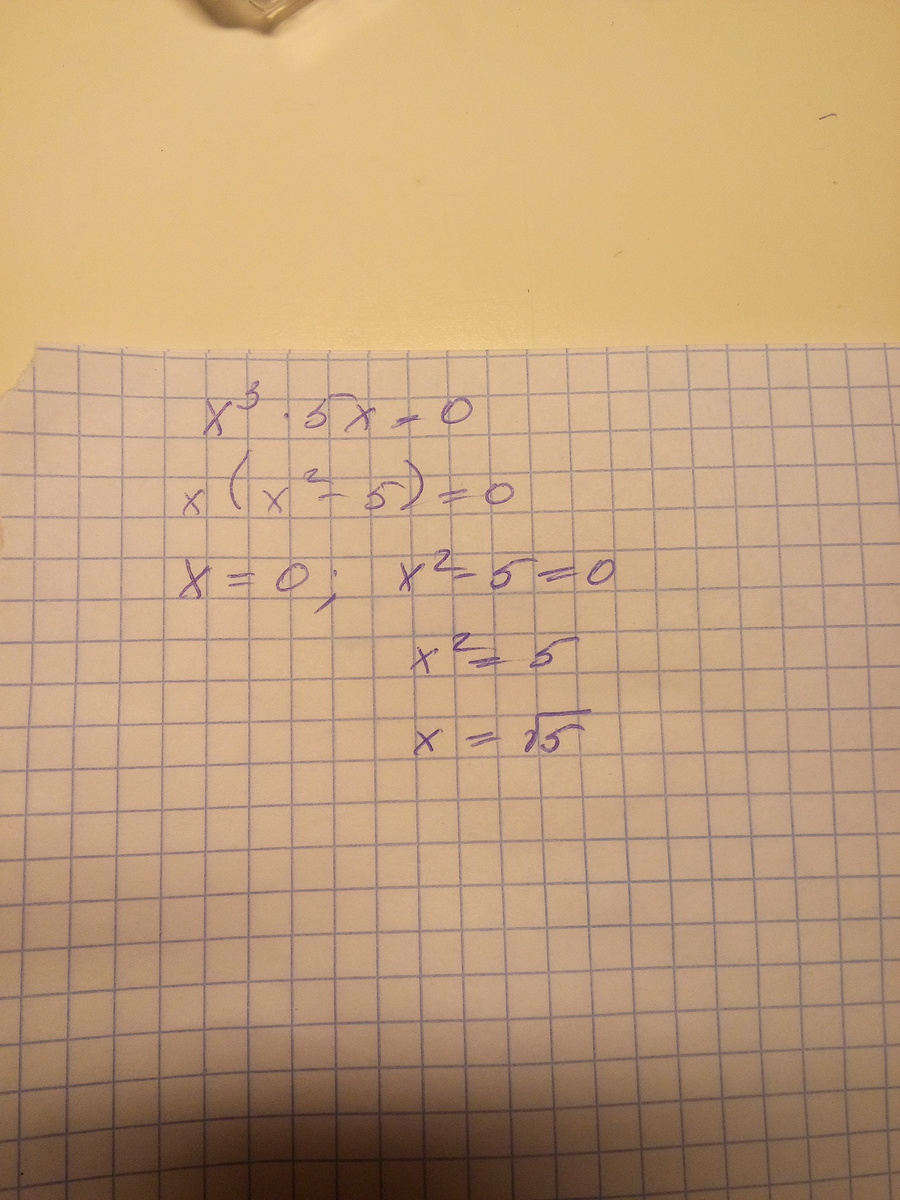 x³ · 5x = 0
x (x² - 5) = 0
x = 0 ; x² - 5 = 0
x² = 5
x = √5